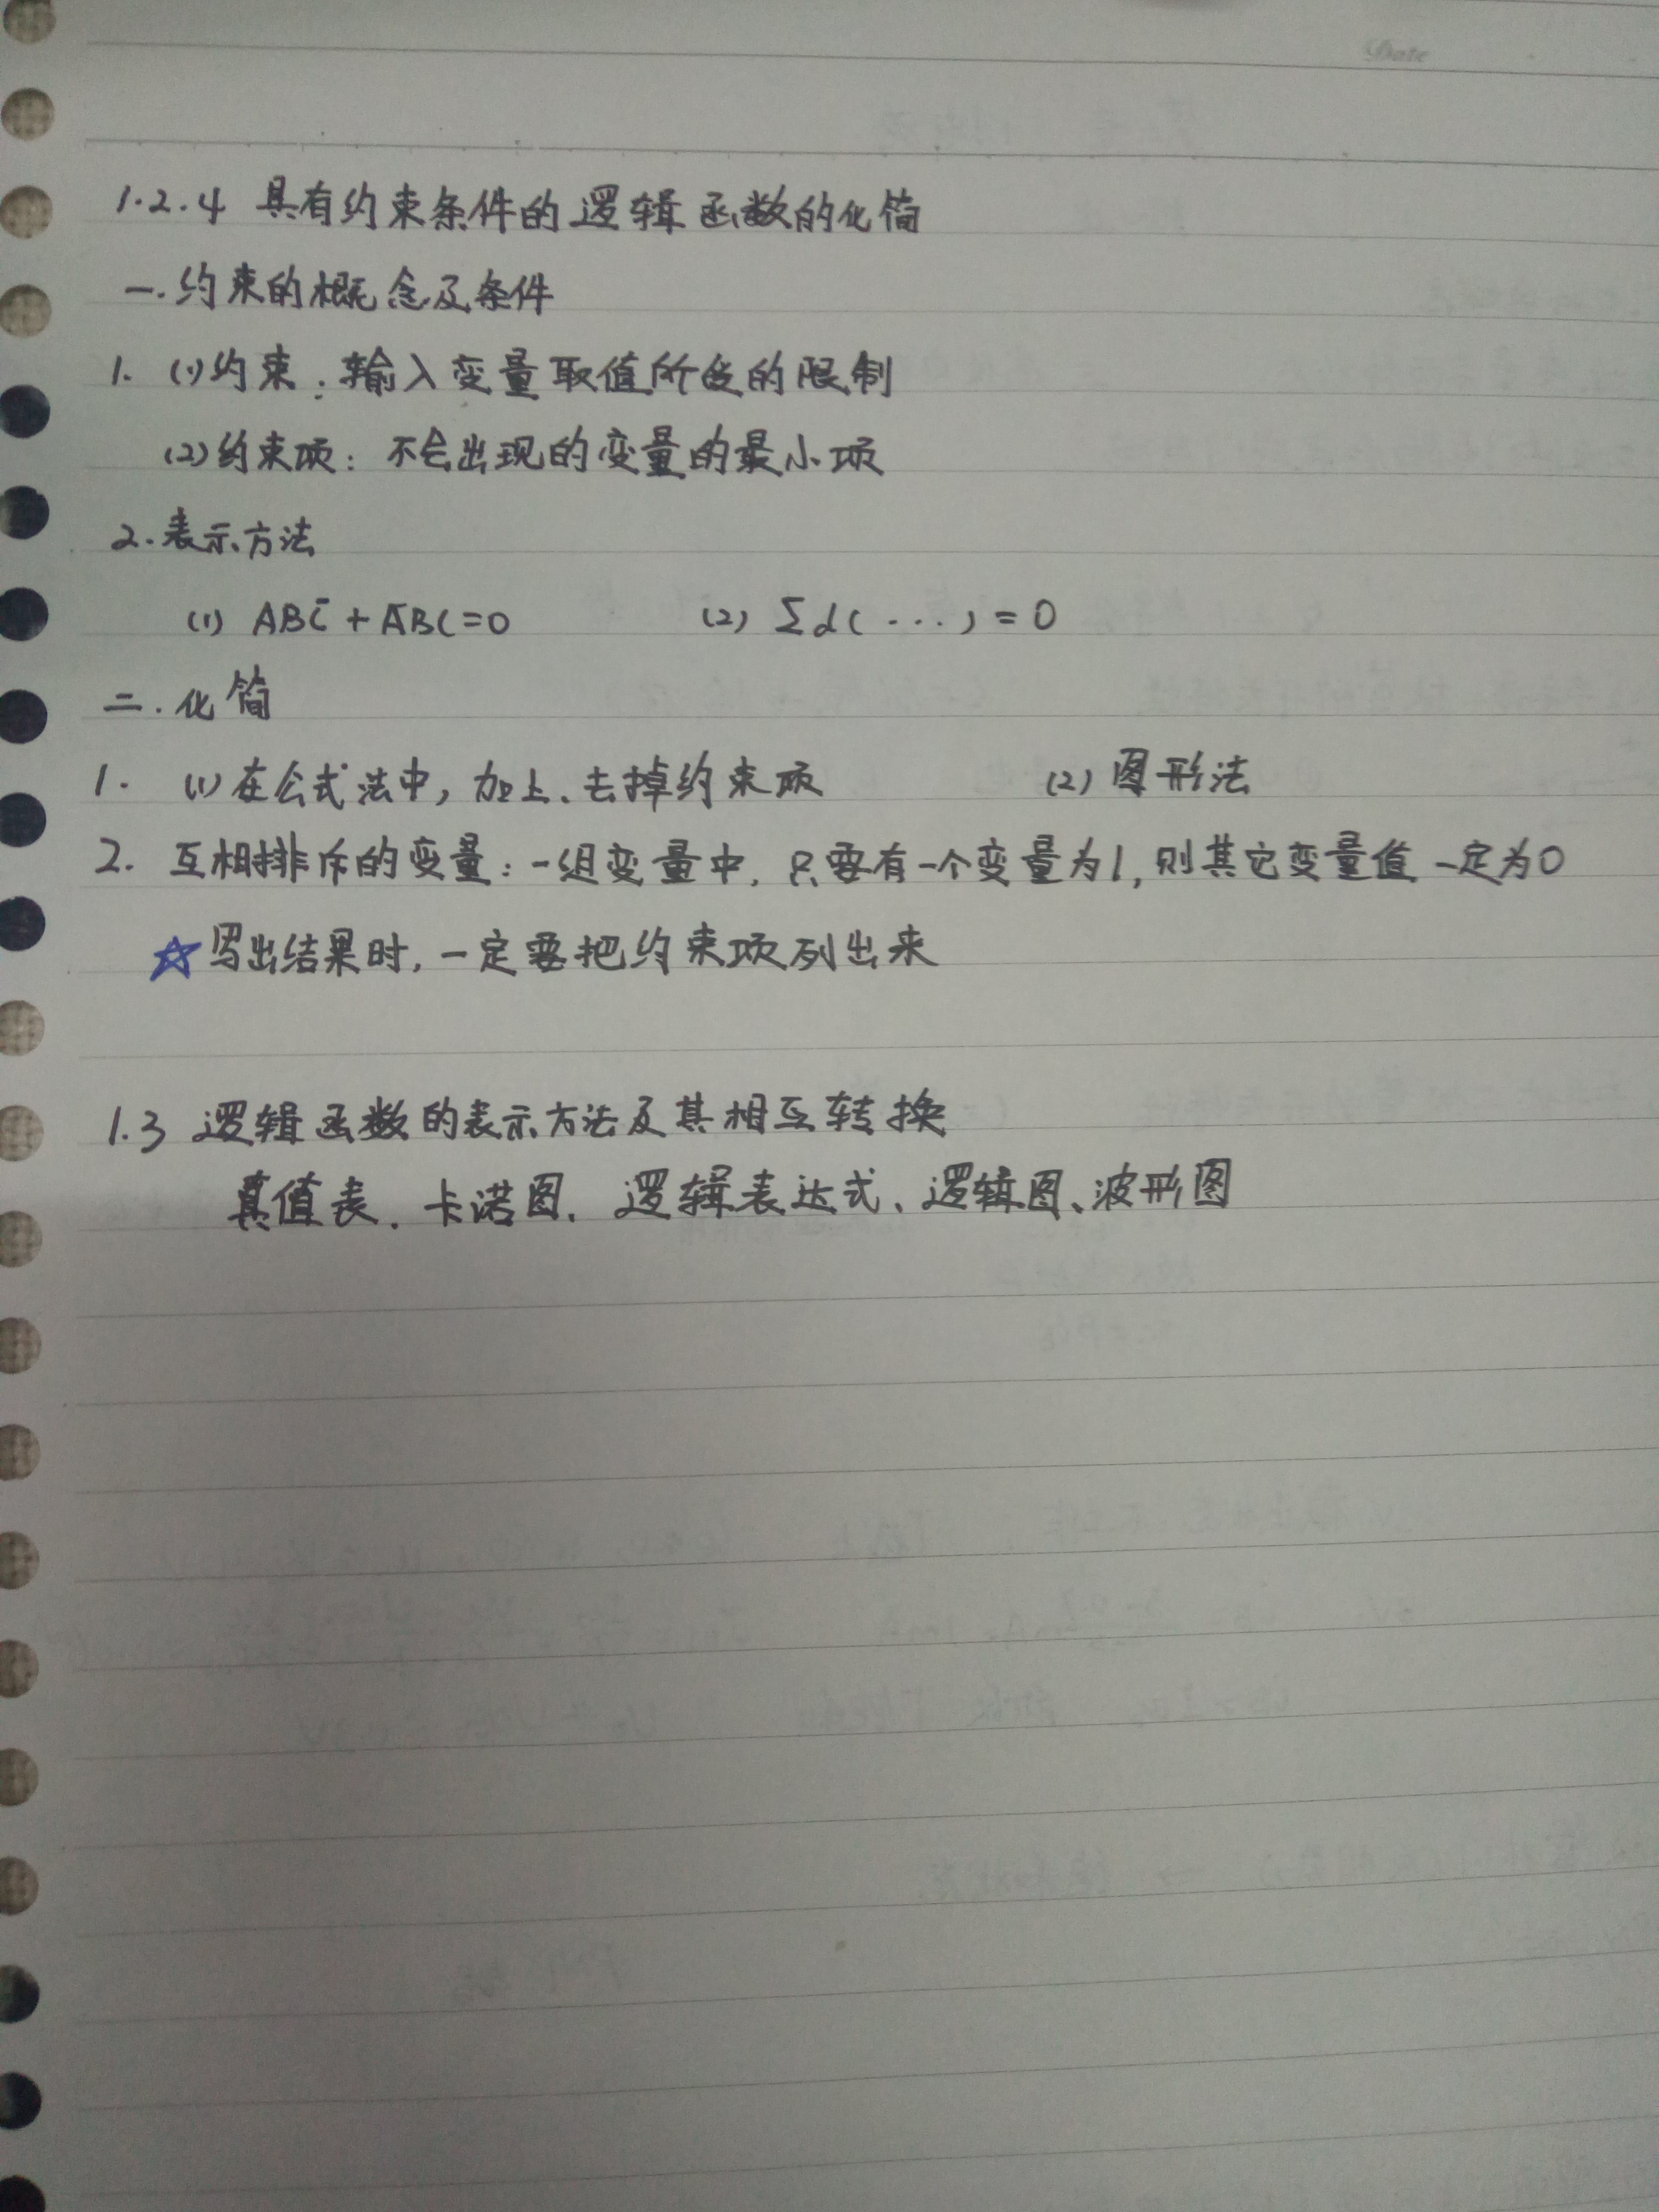 Date
1.2.4 具有约束条件的逻辑函数的化简
一.约束的概念及条件
1. (1)约束:输入变量取值所受的限制
(2)约束项:不会出现的变量的最小项
2.表示方法
(1) ABC̄ + ĀBC=0 (2) Σd(...)=0
二.化简
1. (1)在公式法中,加上、去掉约束项 (2)图形法
2. 互相排斥的变量:一组变量中,只要有一个变量为1,则其它变量值一定为0
☆写出结果时,一定要把约束项列出来
1.3 逻辑函数的表示方法及其相互转换
真值表、卡诺图、逻辑表达式、逻辑图、波形图